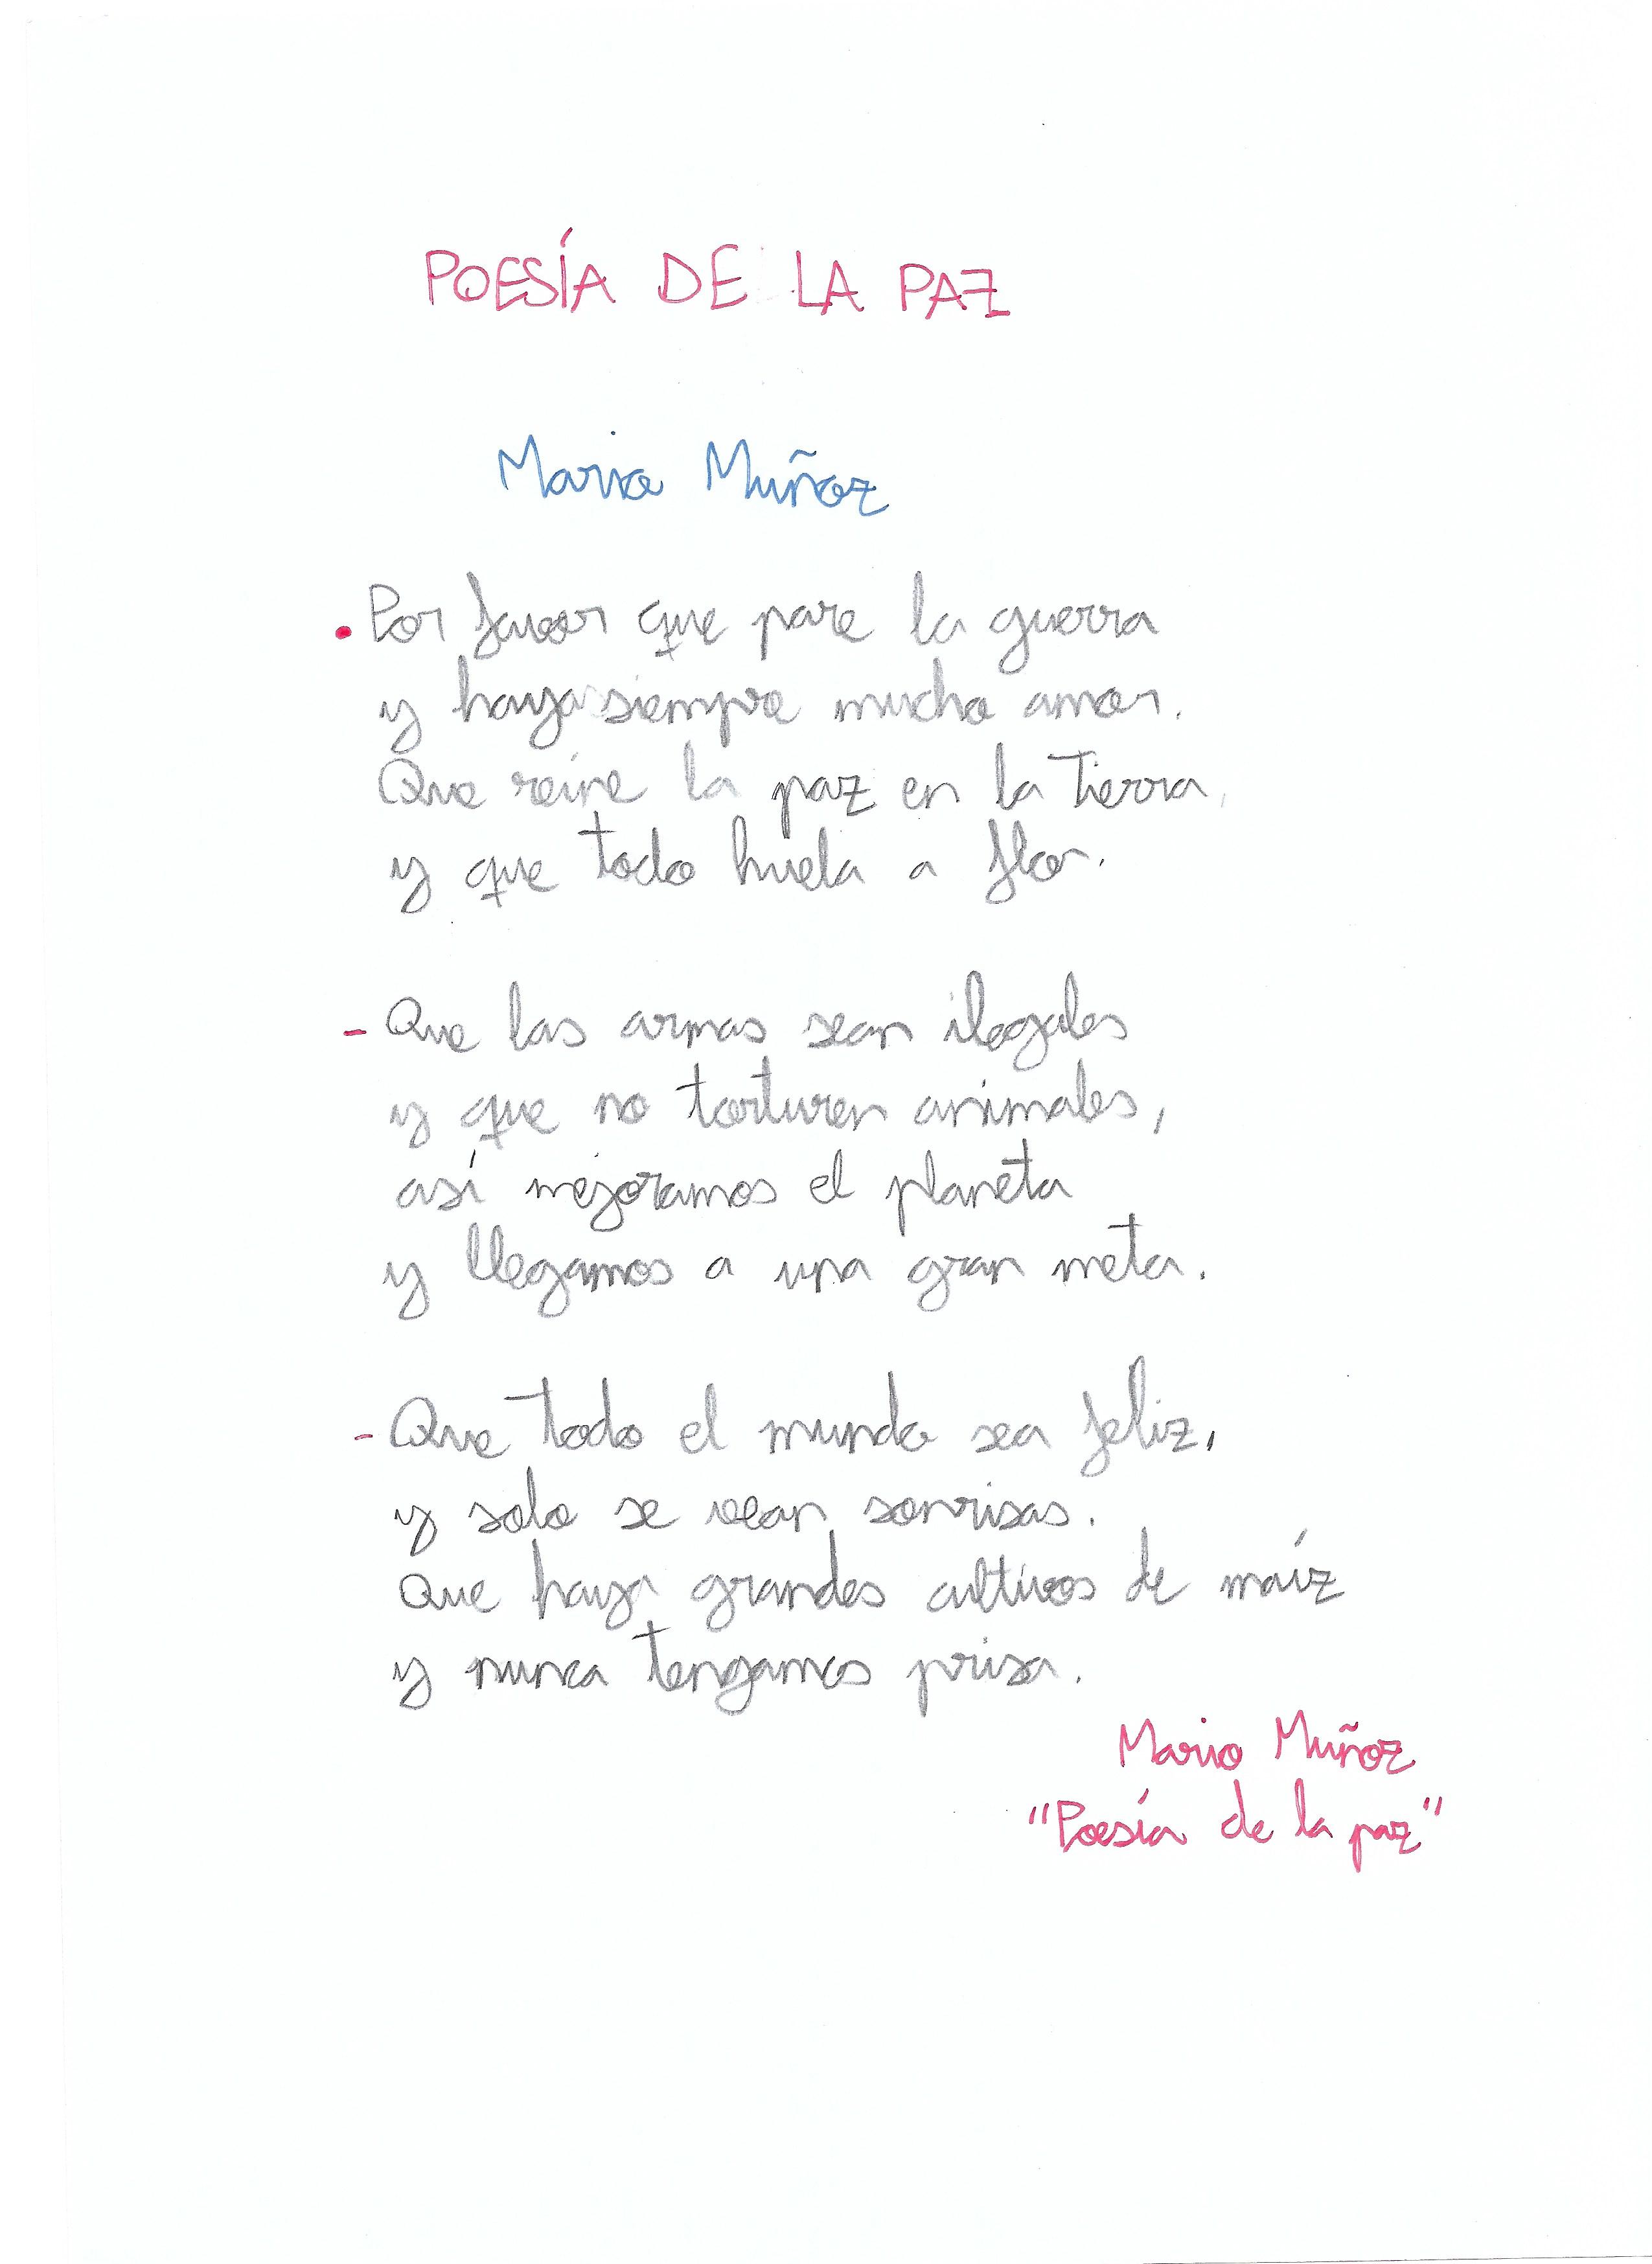 POESÍA DE LA PAZ
Mario Muñoz
• Por favor que pare la guerra
y haya siempre mucho amor.
Que reine la paz en la Tierra,
y que todo huela a flor.
- Que las armas sean ilegales
y que no torturen animales,
así mejoramos el planeta
y llegamos a una gran meta.
- Que todo el mundo sea feliz,
y solo se vean sonrisas.
Que haya grandes cultivos de maíz
y nunca tengamos prisa.
Mario Muñoz
"Poesía de la paz"